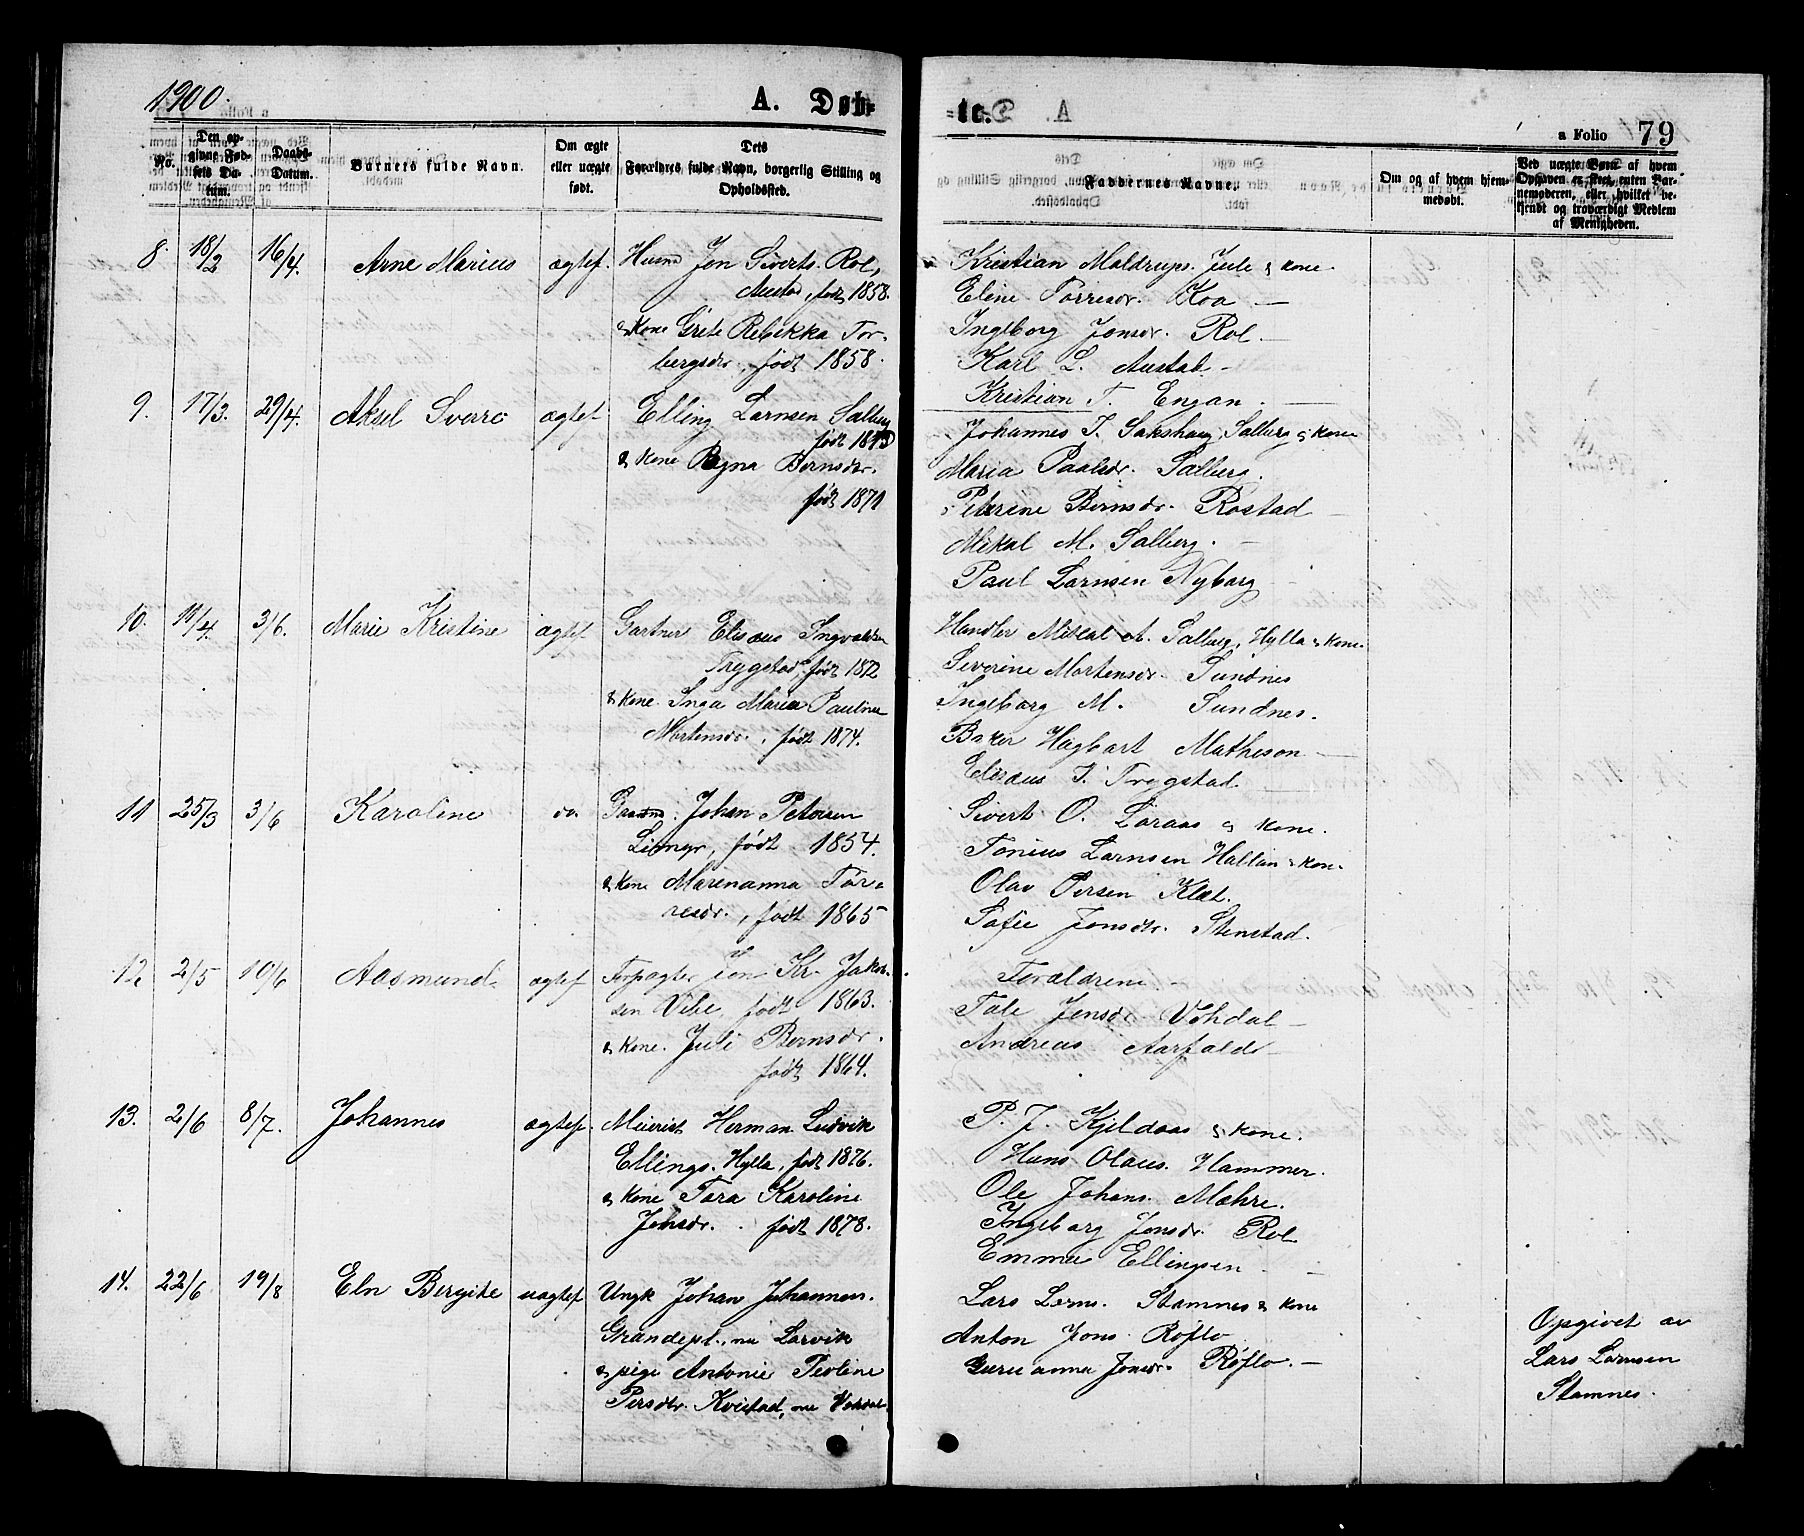 1900.
A. Døb-
te.
a Folio 79
No.
Den op-
givne Fød-
sels Da-
tum.
Daabs-
Datum.
Barnets fulde Navn.
Om ægte
eller uægte
født.
Dets
Forældres fulde Navn, borgerlig Stilling og
Opholdssted.
Faddernes Navne.
Om og af hvem hjem-
medøbt.
Ved uægte Børn af hvem
Opgaven er skeet, enten Bar-
nemoderen, eller hvilket be-
kjendt og troværdigt Medlem
af Menigheden.
8. 18/2 16/4. Arne Marius ægtef.
Husmd Jon Siverts. Rol,
Austad, født 1858.
& kone Grete Rebikka Tor-
bergsdr., født 1858.
Kristian Maldrups. Jule & kone
Eline Torresdr. Koa —
Ingeborg Jonsdr. Rol. —
Karl L. Austad —
Kristian T. Engan. —
9. 17/3. 29/4. Aksel Svare ægtef.
Elling Larnsen Salberg
født 1873
& kone Ragna Bernsdtr.
født 1871
Johannes J. Sakshaug, Salberg & kone
Maria Paalsdr. Salberg.
Petrine Bernsdr. Rostad —
Mikal M. Salberg. —
Paul Larnsen Nyborg —
10. 11/4. 3/6. Marie Kristine ægtef.
Gartner Elisæus Ingvaldsen
Trygstad, født 1872
& kone. Inga Maria Pauline
Mortensdr., født 1874.
Handler Mikal A. Salberg, Hylla & kone.
Severine Mortensdr. Sundnes
Ingeborg M. Sundnes.
Baker Hagbart Matheson —
Elisæus I. Trygstad —
11 25/3 3/6 Karoline do.
Gaardmd. Johan Petersen
født 1854.
& kone Marenanna Tor-
resdr., født 1865
Sivert O. Laraas & kone.
Tonius Larnsen Hallan & kone.
Olav Persen Klæt.
Sofie Jonsdtr. Stenstad.
12 2/5 10/6 Aasmund ægtef.
Forpagter Jon Kr. Jakob-
sen Vibe, født 1863.
& kone. Juli Bernsdr.
født 1864.
Forældrene. —
Tale Jensdr Vohdal —
Andreas Aarfald —
13. 2/6 8/7. Johannes ægtef.
Meierist Herman Ludvik
Ellings. Hylla, født 1876.
& kone Tora Karoline
Johsdr. født 1878.
P. J. Kjeldaas & kone.
Hans Olaus. Hammer.
Ole Johans. Mæhre.
Ingeborg Jonsdr. Rol
Emma Ellingsen —
14. 22/6 19/8 Eln Bergite uægtef.
Ungk Johan Johannsen.
Grandepl., nu Larvik
& pige Antonie Peoline
Persdtr. Kvistad, nu Vohdal
Lars Lorns. Stamnes & kone
Anton Jons. Røflo
Gurianna Jonsdr. Røflo. —
Opgivet av
Lars Larnsen
Stamnes.